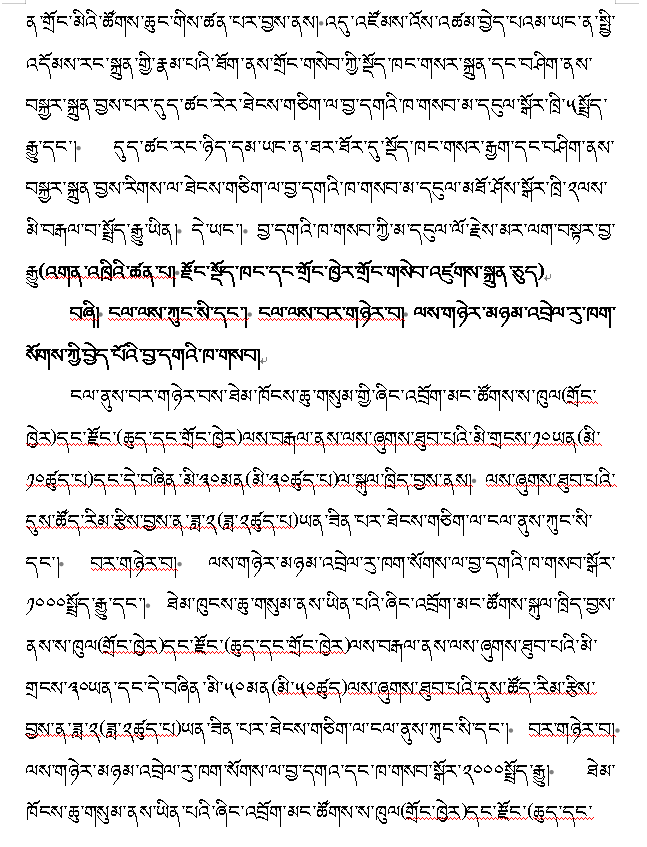 ན་གྲོང་མིའི་ཚོགས་ཆུང་གིས་ཚན་པར་བྱས་ནས། འདུ་འཛོམས་འོས་འཚམ་བྱེད་པའམ་ཡང་ན་སྤྱི་
འདོམས་རང་སྐྲུན་གྱི་རྣམ་པའི་ཐོག་ནས་གྲོང་གསེབ་ཀྱི་སྡོད་ཁང་གསར་སྐྲུན་དང་བཤིག་ནས་
བསྐྱར་སྐྲུན་བྱས་པར་དུད་ཚང་རེར་ཐེངས་གཅིག་ལ་བྱ་དགའི་ཁ་གསབ་མ་དངུལ་སྒོར་ཁྲི་༥སྤྲོད་
རྒྱུ་དང་། དུད་ཚང་རང་ཉིད་དམ་ཡང་ན་ཐར་ཐོར་དུ་སྡོད་ཁང་གསར་རྒྱག་དང་བཤིག་ནས་
བསྐྱར་སྐྲུན་བྱས་རིགས་ལ་ཐེངས་གཅིག་ལ་བྱ་དགའི་ཁ་གསབ་མ་དངུལ་མཐོ་ཤོས་སྒོར་ཁྲི་༢ལས་
མི་བརྒལ་བ་སྤྲོད་རྒྱུ་ཡིན། དེ་ཡང་། བྱ་དགའི་ཁ་གསབ་ཀྱི་མ་དངུལ་ལོ་རྗེས་མར་ལག་བསྟར་བྱ་
རྒྱུ(འགན་འཁྲིའི་ཚན་པ། རྫོང་སྡོད་ཁང་དང་གྲོང་ཁྱེར་གྲོང་གསེབ་འཛུགས་སྐྲུན་ཅུད)
བཞི། ངལ་ལས་ཀུང་སི་དང་། ངལ་ལས་བར་གཉེར་བ། ལས་གཉེར་མཉམ་འབྲེལ་རུ་ཁག་
སོགས་ཀྱི་བྱེད་པོའི་བྱ་དགའི་ཁ་གསབ།
ངལ་ནུས་བར་གཉེར་བས་ཐེམ་ཁོངས་ཆུ་གསུམ་གྱི་ཞིང་འབྲོག་མང་ཚོགས་ས་ཁུལ(གྲོང་
ཁྱེར)དང་རྫོང་(ཆུད་དང་གྲོང་ཁྱེར)ལས་བརྒལ་ནས་ལས་ཞུགས་ཐུབ་པའི་མི་གྲངས་༡༠ཡན(མི་
༡༠ཚུད་པ)དང་དེ་བཞིན་མི་༣༠མན(མི་༣༠ཚུད་པ)ལ་སྐུལ་ཁྲིད་བྱས་ནས། ལས་ཞུགས་ཐུབ་པའི་
དུས་ཚོད་རིམ་རྩིས་བྱས་ན་ཟླ་༢(ཟླ་༢ཚུད་པ)ཡན་ཟིན་པར་ཐེངས་གཅིག་ལ་ངལ་ནུས་ཀུང་སི་
དང་། བར་གཉེར་བ། ལས་གཉེར་མཉམ་འབྲེལ་རུ་ཁག་སོགས་ལ་བྱ་དགའི་ཁ་གསབ་སྒོར་
༡༠༠༠སྤྲོད་རྒྱུ་དང་། ཐེམ་ཁུངས་ཆུ་གསུམ་ནས་ཡིན་པའི་ཞིང་འབྲོག་མང་ཚོགས་སྐུལ་ཁྲིད་བྱས་
ནས་ས་ཁུལ(གྲོང་ཁྱེར)དང་རྫོང་(ཆུད་དང་གྲོང་ཁྱེར)ལས་བརྒལ་ནས་ལས་ཞུགས་ཐུབ་པའི་མི་
གྲངས་༣༠ཡན་དང་དེ་བཞིན་མི་༥༠མན(མི་༥༠ཚུད)ལས་ཞུགས་ཐུབ་པའི་དུས་ཚོད་རིམ་རྩིས་
བྱས་ན་ཟླ་༢(ཟླ་༢ཚུད་པ)ཡན་ཟིན་པར་ཐེངས་གཅིག་ལ་ངལ་ནུས་ཀུང་སི་དང་། བར་གཉེར་བ།
ལས་གཉེར་མཉམ་འབྲེལ་རུ་ཁག་སོགས་ལ་བྱ་དགའ་དང་ཁ་གསབ་སྒོར་༢༠༠༠སྤྲོད་རྒྱུ། ཐེམ་
ཁོངས་ཆུ་གསུམ་ནས་ཡིན་པའི་ཞིང་འབྲོག་མང་ཚོགས་ས་ཁུལ(གྲོང་ཁྱེར)དང་རྫོང་(ཆུད་དང་